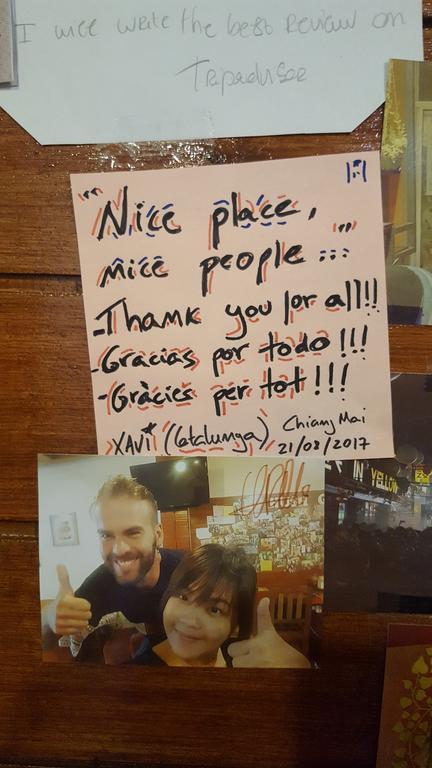 I will write the best review on
Tripadvisor
"Nice place,
nice people..."
-Thank you for all!!
-Gracias por todo!!!
-Gràcies per tot!!!
XAVI* (Catalunya)
Chiang Mai
21/08/2017
IN YELLOW